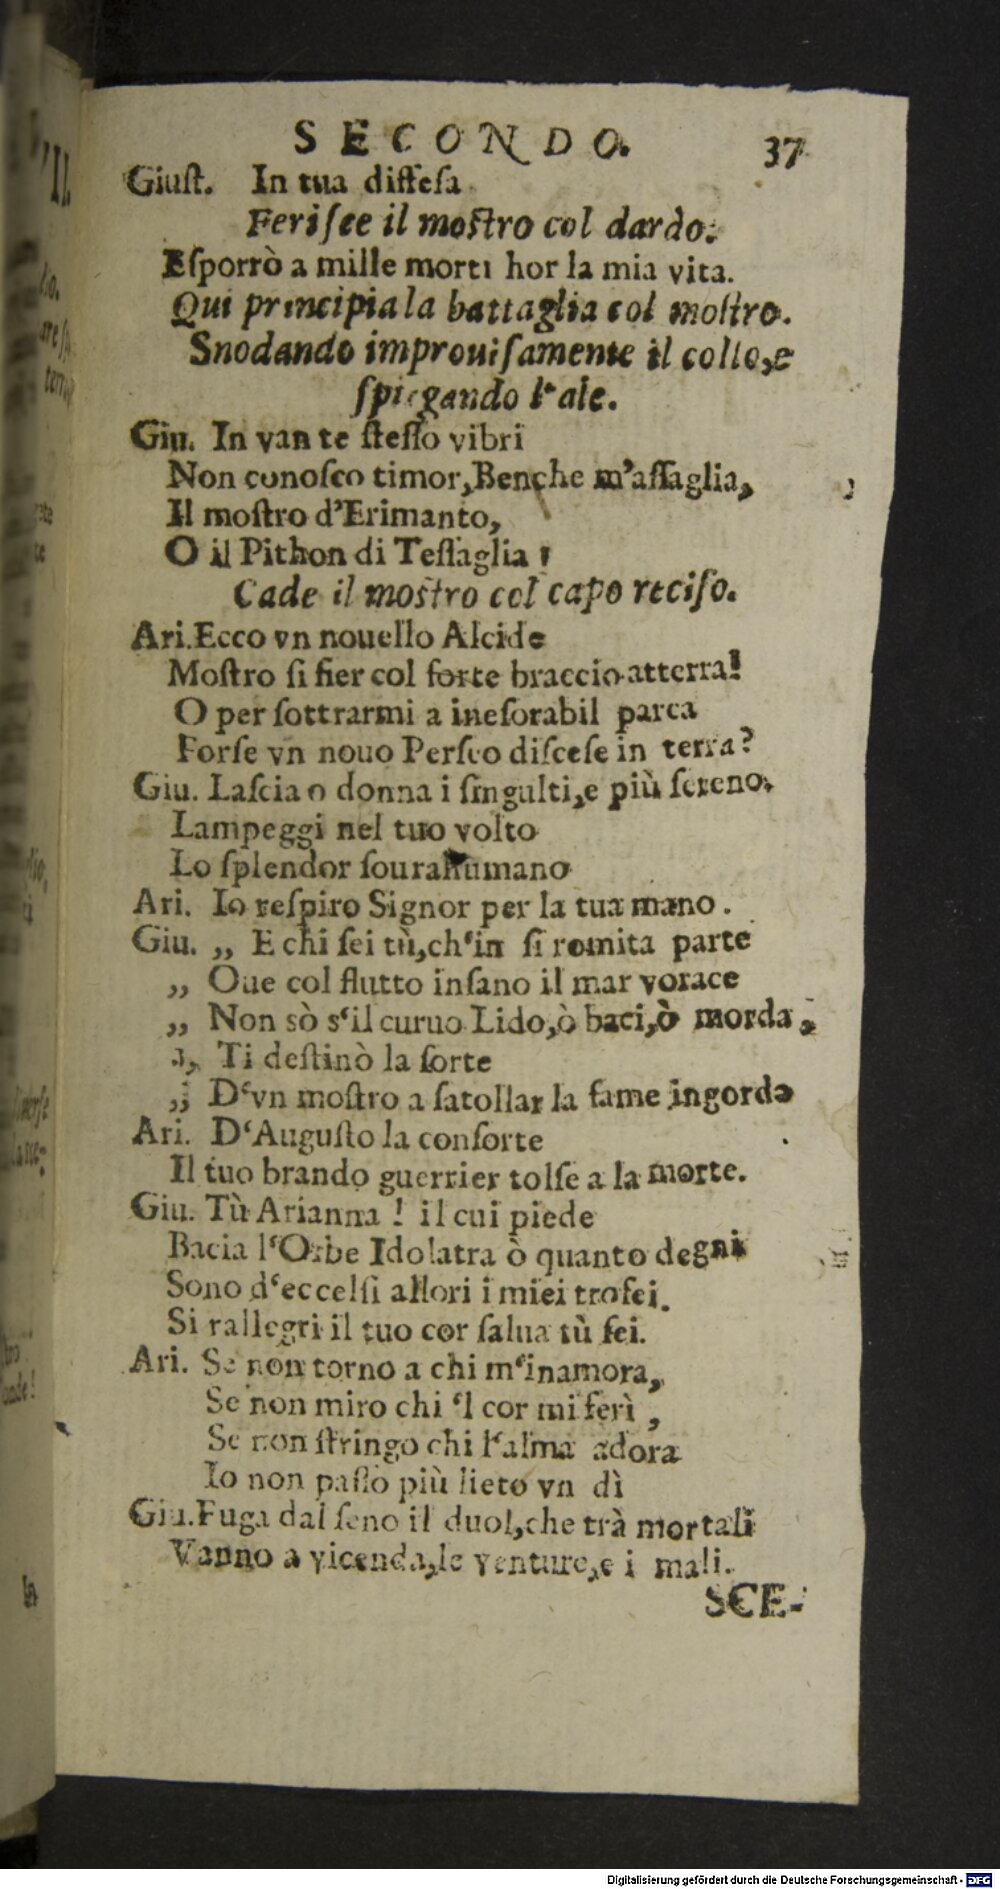 SECONDO. 37
Giuſt. In tua diffeſa
Feriſce il moſtro col dardo.
Eſporrò a mille morti hor la mia vita.
Qui principia la battaglia col moſtro.
Snodando improuiſamente il collo, e
ſpiegando l'ale.
Giu. In van te ſteſſo vibri
Non conoſco timor, Benche m'aſſaglia,
Il moſtro d'Erimanto,
O il Pithon di Teſſaglia !
Cade il moſtro col capo reciſo.
Ari. Ecco vn nouello Alcide
Moſtro ſi fier col forte braccio atterra!
O per ſottrarmi a ineſorabil parca
Forſe vn nouo Perſeo diſceſe in terra?
Giu. Laſcia o donna i ſingulti, e più ſereno.
Lampeggi nel tuo volto
Lo ſplendor ſourahumano
Ari. Io reſpiro Signor per la tua mano.
Giu. „ E chi ſei tù, ch'in ſi romita parte
„ Oue col flutto inſano il mar vorace
„ Non sò s'il curuo Lido, ò baci, ò morda,
„ Ti deſtinò la ſorte
„ D'vn moſtro a ſatollar la fame ingorda
Ari. D'Auguſto la conſorte
Il tuo brando guerrier tolſe a la morte.
Giu. Tù Arianna ! il cui piede
Bacia l'Orbe Idolatra ò quanto degni
Sono d'eccelſi allori i miei trofei.
Si rallegri il tuo cor ſalua tù ſei.
Ari. Se non torno a chi m'inamora,
Se non miro chi 'l cor mi ferì,
Se non ſtringo chi l'alma adora
Io non paſſo più lieto vn dì
Giu. Fuga dal ſeno il duol, che trà mortali
Vanno a vicenda, le venture, e i mali.
SCE-
Digitalisierung gefördert durch die Deutsche Forschungsgemeinschaft - DFG